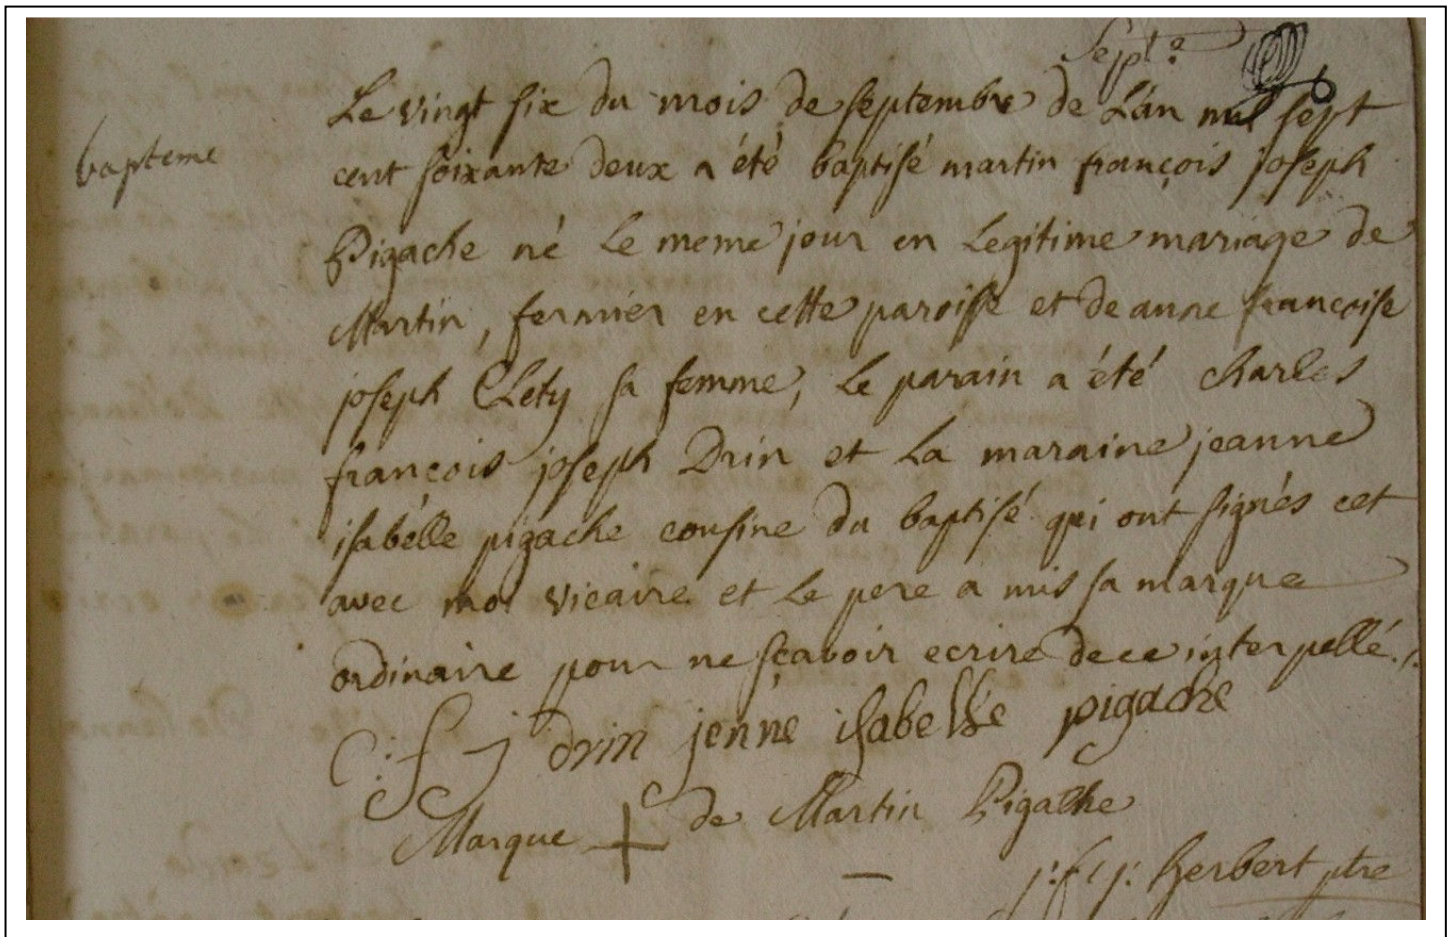 Sept.e
Le vingt six du mois de septembre de L'an mil sept
bapteme
cent soixante deux a été baptisé martin françois joseph
Pigache né le meme jour en legitime mariage de
Martin, fermier en cette paroisse et de anne françoise
joseph Clety sa femme, le parain a été charles
françois joseph Drin et la maraine jeanne
isabélle pigache cousine du baptisé qui ont signés cet
avec moi vicaire et le pere a mis sa marque
ordinaire pour ne sçavoir ecrire de ce interpellé./.
C: f j drin jenne isabelle pigache
Marque + de Martin Pigache
j: f: j: herbert ptre